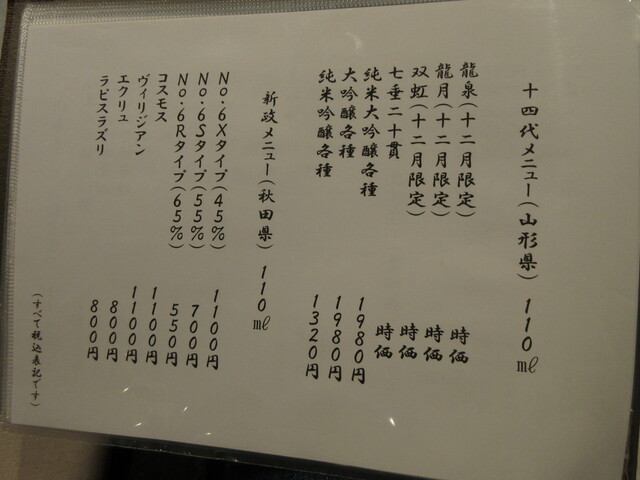 十四代メニュー(山形県) 110㎖
龍泉(十二月限定) 時価
龍月(十二月限定) 時価
双虹(十二月限定) 時価
七垂二十貫 時価
純米大吟醸各種 1980円
大吟醸各種 1980円
純米吟醸各種 1320円
新政メニュー(秋田県) 110㎖
No.6Xタイプ(45%) 1100円
No.6Sタイプ(55%) 700円
No.6Rタイプ(65%) 550円
コスモス 1100円
ヴィリジアン 1100円
エクリュ 800円
ラピスラズリ 800円
(すべて税込表記です)